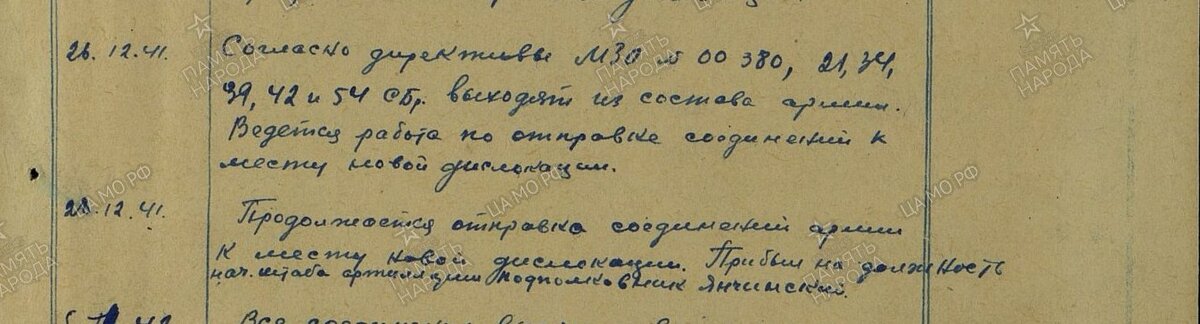 26.12.41. Согласно директивы МЗО № 00380, 21, 34,
39, 42 и 54 СБр. выходят из состава армии.
Ведется работа по отправке соединений к
месту новой дислокации.
28.12.41. Продолжается отправка соединений армии
к месту новой дислокации. Прибыл на должность
нач. штаба артиллерии подполковник Янчинский.
Все
ПАМЯТЬ НАРОДА
ЦАМО.РФ